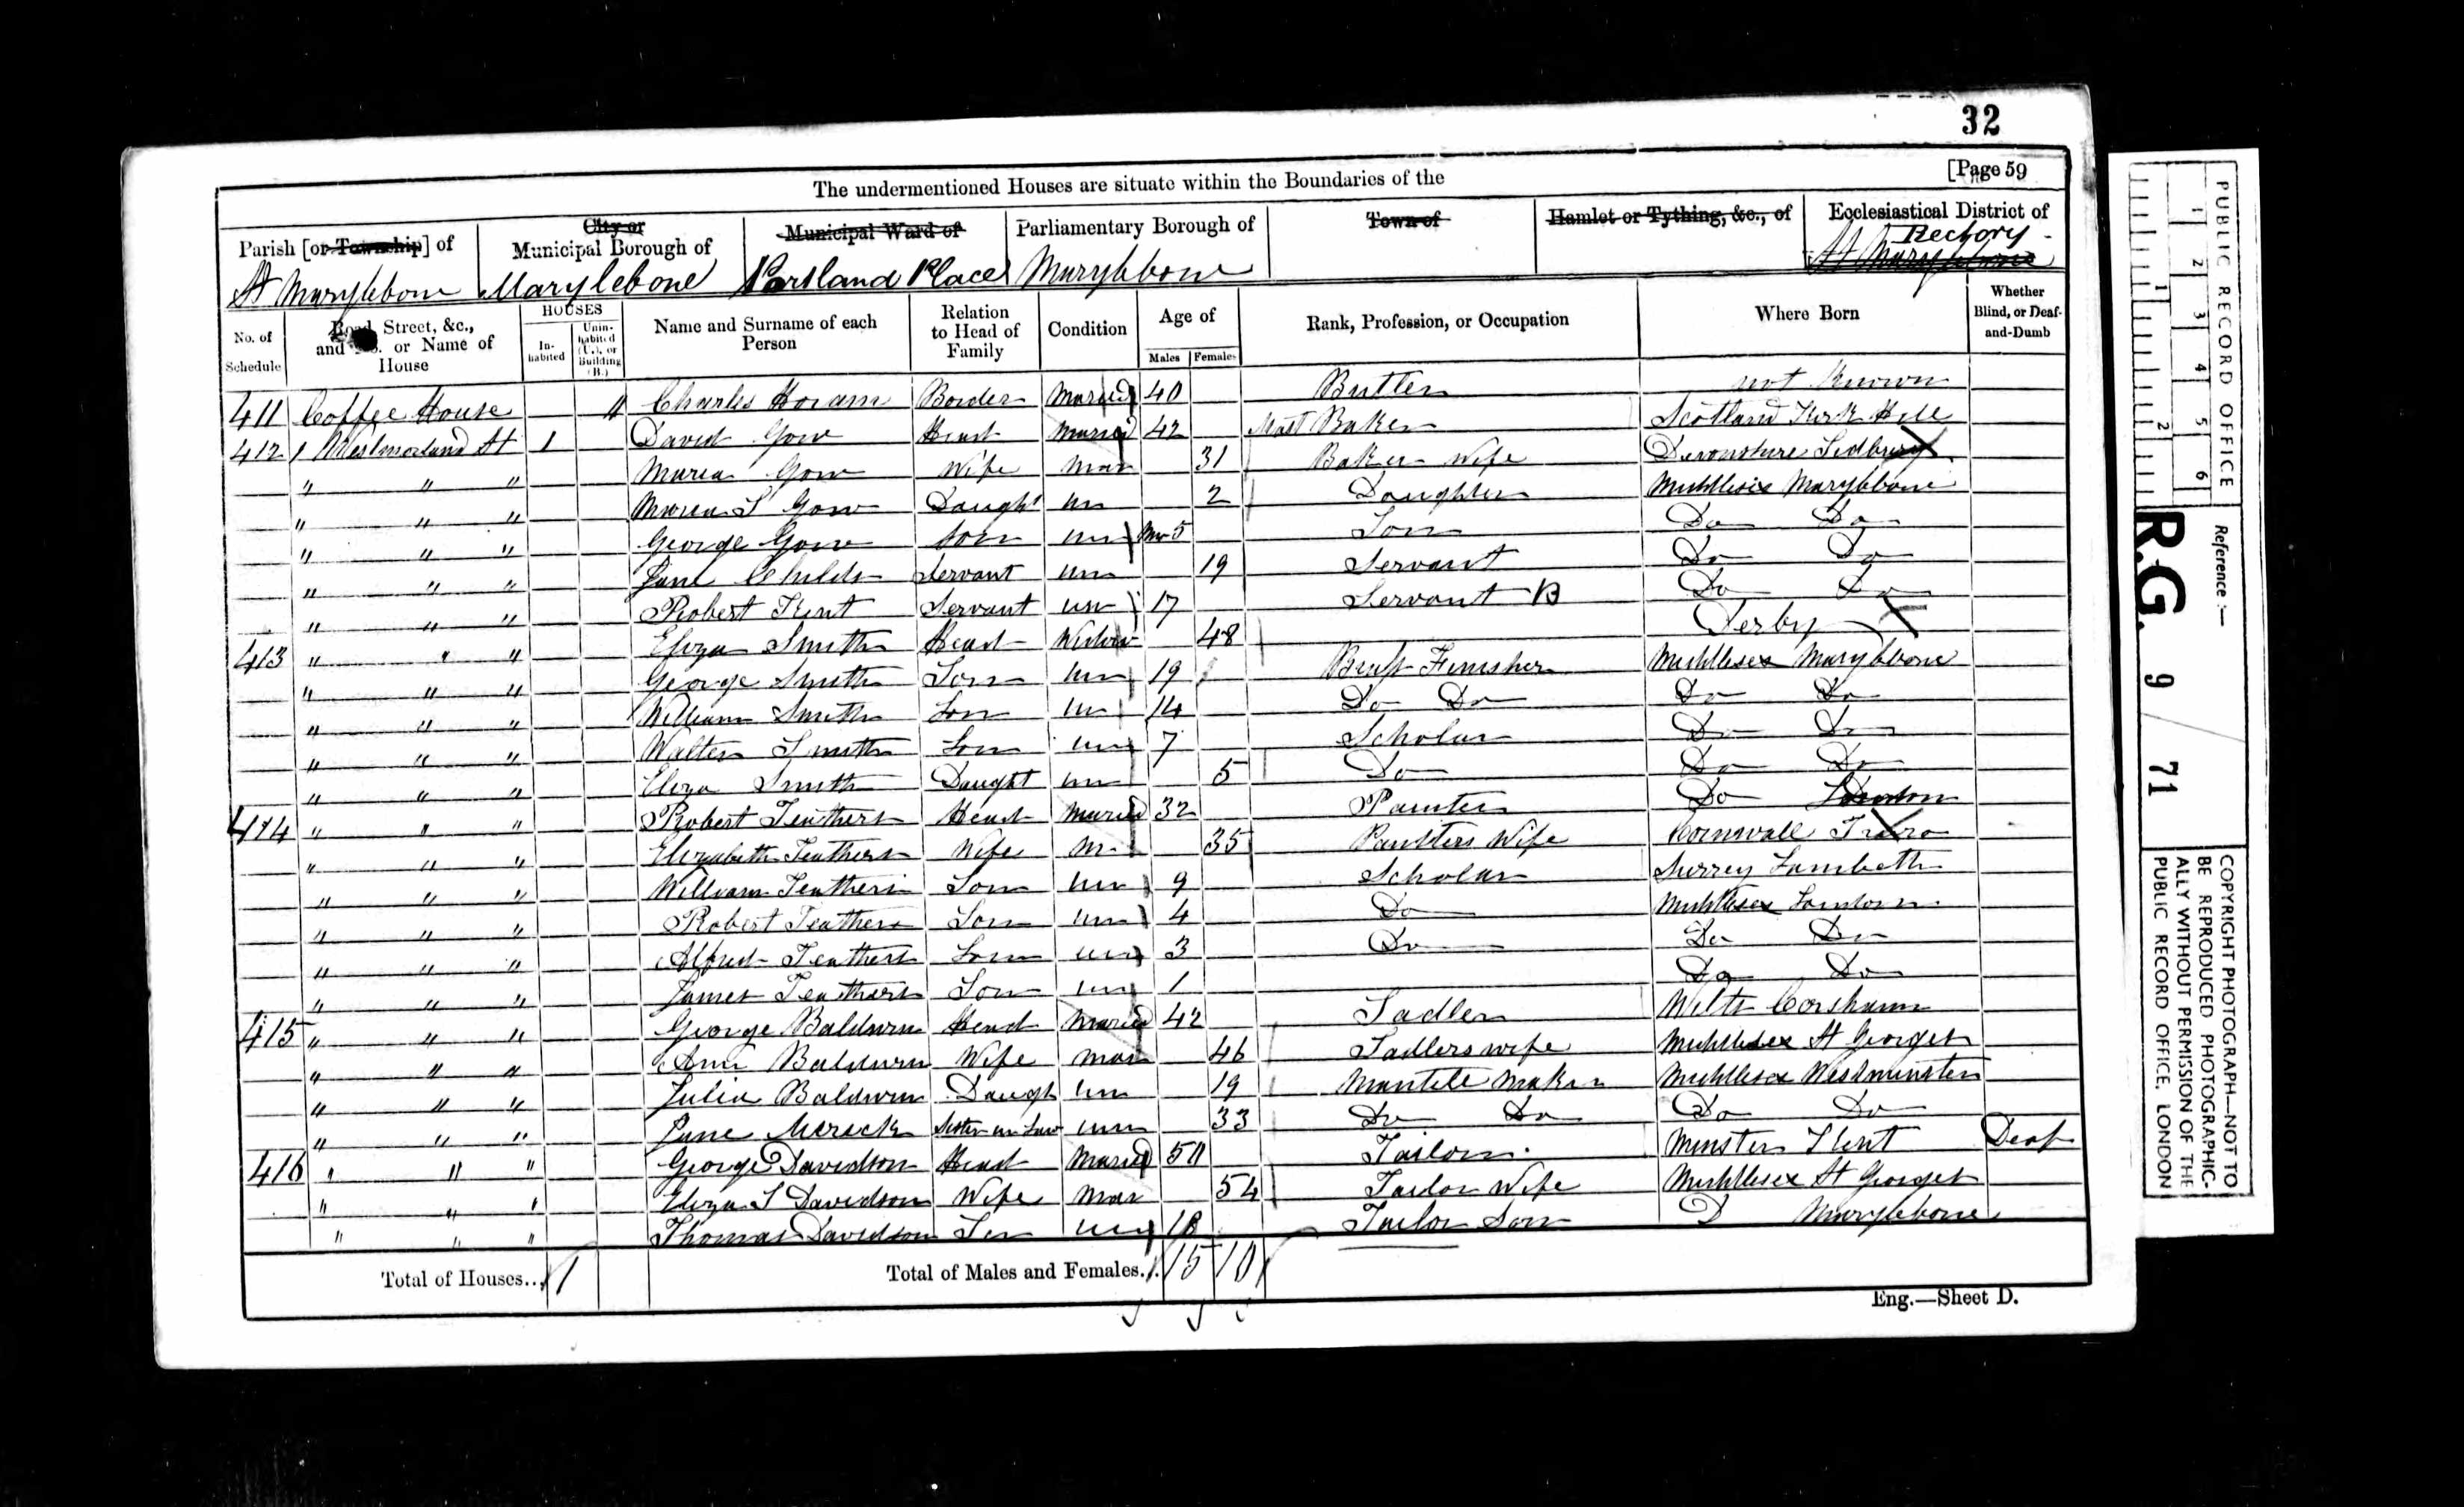 32
[Page 59
The undermentioned Houses are situate within the Boundaries of the
Parish [or Township] of
City or Municipal Borough of
Municipal Ward of
Parliamentary Borough of
Town of
Hamlet or Tything, &c., of
Ecclesiastical District of
St Marylebone Marylebone Portland Place Marylebone Rectory St Marylebone
No. of Schedule
Road, Street, &c., and No. or Name of House
HOUSES
In-habited
Unin-habited (U.), or Building (B.)
Name and Surname of each Person
Relation to Head of Family
Condition
Age of
Males Females
Rank, Profession, or Occupation
Where Born
Whether Blind, or Deaf-and-Dumb
411 Coffee House " Charles Horam Border Married 40 Butler not Known
412 1 Westmorland St 1 David Gow Head Married 42 Mast Baker Scotland Kirk Hill
" " " Maria Gow Wife Mar 31 Baker Wife Devonshire
" " " Maria S Gow Daught un 2 Daughter Middlesex Marylebone
" " " George Gow Son un Mo 5 Son Do Do
" " " Jane Childs Servant un 19 Servant Do Do
" " " Robert Kent Servant un 17 Servant B Do Do
413 " " " Eliza Smith Head Widow 48 Derby
" " " George Smith Son un 19 Finisher Middlesex Marylebone
" " " William Smith Son un 14 Do Do Do Do
" " " Walter Smith Son un 7 Scholar Do Do
" " " Eliza Smith Daught un 5 Do Do Do
414 " " " Robert Teathers Head Married 32 Painter Do London
" " " Elizabeth Teathers Wife M 35 Painters Wife Cornwall Truro
" " " William Teathers Son un 9 Scholar Surrey Lambeth
" " " Robert Teathers Son un 4 Do Middlesex London
" " " Alfred Teathers Son un 3 Do Do Do
" " " James Teathers Son un 1 Do Do
415 " " " George Baldwin Head Married 42 Sadler Wilts Corsham
" " " Ann Baldwin Wife Mar 46 Sadlers wife Middlesex St Georges
" " " Julia Baldwin Daugh un 19 Mantele Maker Middlesex Westminster
" " " Jane Merick Sister in Law un 33 Do Do Do Do
416 " " " George Davidson Head Married 50 Tailor Minster Kent Deaf
" " " Eliza S Davidson Wife Mar 54 Tailor Wife Middlesex St Georges
" " " Thomas Davidson Son un 18 Tailor Son D Marylebone
Total of Houses... 1
Total of Males and Females... 15 10
Eng.—Sheet D.
PUBLIC RECORD OFFICE
1 2 3 4 5 6
1 2
Reference :—
R.G. 9 / 71
COPYRIGHT PHOTOGRAPH—NOT TO
BE REPRODUCED PHOTOGRAPHIC-
ALLY WITHOUT PERMISSION OF THE
PUBLIC RECORD OFFICE, LONDON